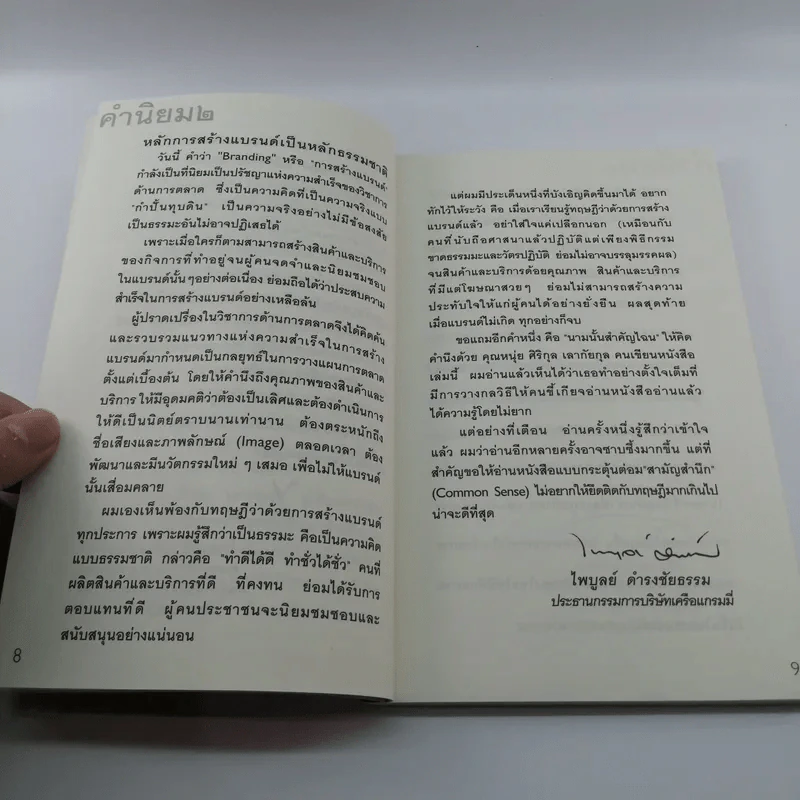 คำนิยม๒
หลักการสร้างแบรนด์เป็นหลักธรรมชาติ
วันนี้ คำว่า "Branding" หรือ "การสร้างแบรนด์"
กำลังเป็นที่นิยมเป็นปรัชญาแห่งความสำเร็จของวิชาการ
ด้านการตลาด ซึ่งเป็นความคิดที่เป็นความจริงแบบ
"กำปั้นทุบดิน" เป็นความจริงอย่างไม่มีข้อสงสัย
เป็นธรรมะอันไม่อาจปฏิเสธได้
เพราะเมื่อใครก็ตามสามารถสร้างสินค้าและบริการ
ของกิจการที่ทำอยู่จนผู้คนจดจำและนิยมชมชอบ
ในแบรนด์นั้นๆอย่างต่อเนื่อง ย่อมถือได้ว่าประสบความ
สำเร็จในการสร้างแบรนด์อย่างเหลือล้น
ผู้ปราดเปรื่องในวิชาการด้านการตลาดจึงได้คิดค้น
และรวบรวมแนวทางแห่งความสำเร็จในการสร้าง
แบรนด์มากำหนดเป็นกลยุทธ์ในการวางแผนการตลาด
ตั้งแต่เบื้องต้น โดยให้คำนึงถึงคุณภาพของสินค้าและ
บริการ ให้มีอุดมคติว่าต้องเป็นเลิศและต้องดำเนินการ
ให้ดีเป็นนิตย์ตราบนานเท่านาน ต้องตระหนักถึง
ชื่อเสียงและภาพลักษณ์ (Image) ตลอดเวลา ต้อง
พัฒนาและมีนวัตกรรมใหม่ ๆ เสมอ เพื่อไม่ให้แบรนด์
นั้นเสื่อมคลาย
ผมเองเห็นพ้องกับทฤษฎีว่าด้วยการสร้างแบรนด์
ทุกประการ เพราะผมรู้สึกว่าเป็นธรรมะ คือเป็นความคิด
แบบธรรมชาติ กล่าวคือ "ทำดีได้ดี ทำชั่วได้ชั่ว" คนที่
ผลิตสินค้าและบริการที่ดี ที่คงทน ย่อมได้รับการ
ตอบแทนที่ดี ผู้คนประชาชนจะนิยมชมชอบและ
สนับสนุนอย่างแน่นอน
8
แต่ผมมีประเด็นหนึ่งที่บังเอิญคิดขึ้นมาได้ อยาก
ทักไว้ให้ระวัง คือ เมื่อเราเรียนรู้ทฤษฎีว่าด้วยการสร้าง
แบรนด์แล้ว อย่าใส่ใจแค่เปลือกนอก (เหมือนกับ
คนที่นับถือศาสนาแล้วปฏิบัติแต่เพียงพิธีกรรม
ขาดธรรมมะและวัตรปฏิบัติ ย่อมไม่อาจบรรลุมรรคผล)
จนสินค้าและบริการด้อยคุณภาพ สินค้าและบริการ
ที่มีแต่โฆษณาสวยๆ ย่อมไม่สามารถสร้างความ
ประทับใจให้แก่ผู้คนได้อย่างยั่งยืน ผลสุดท้าย
เมื่อแบรนด์ไม่เกิด ทุกอย่างก็จบ
ขอแถมอีกคำหนึ่ง คือ "นามนั้นสำคัญไฉน" ให้คิด
คำนึงด้วย คุณหนุ่ย ศิริกุล เลากัยกุล คนเขียนหนังสือ
เล่มนี้ ผมอ่านแล้วเห็นได้ว่าเธอทำอย่างตั้งใจเต็มที่
มีการวางกลวิธีให้คนขี้เกียจอ่านหนังสืออ่านแล้ว
ได้ความรู้โดยไม่ยาก
แต่อย่างที่เตือน อ่านครั้งหนึ่งรู้สึกว่าเข้าใจ
แล้ว ผมว่าอ่านอีกหลายครั้งอาจซาบซึ้งมากขึ้น แต่ที่
สำคัญขอให้อ่านหนังสือแบบกระตุ้นต่อม"สามัญสำนึก"
(Common Sense) ไม่อยากให้ยึดติดกับทฤษฎีมากเกินไป
น่าจะดีที่สุด
ไพบูลย์ ดำรงชัยธรรม
ประธานกรรมการบริษัทเครือแกรมมี่
9